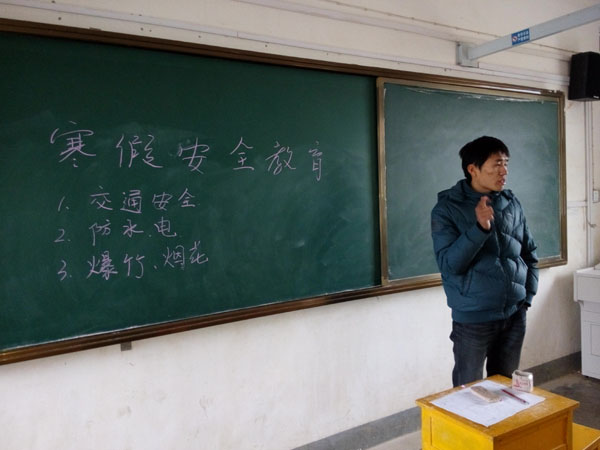 寒假安全教育
1. 交通安全
2. 防水、电
3. 爆竹、烟花